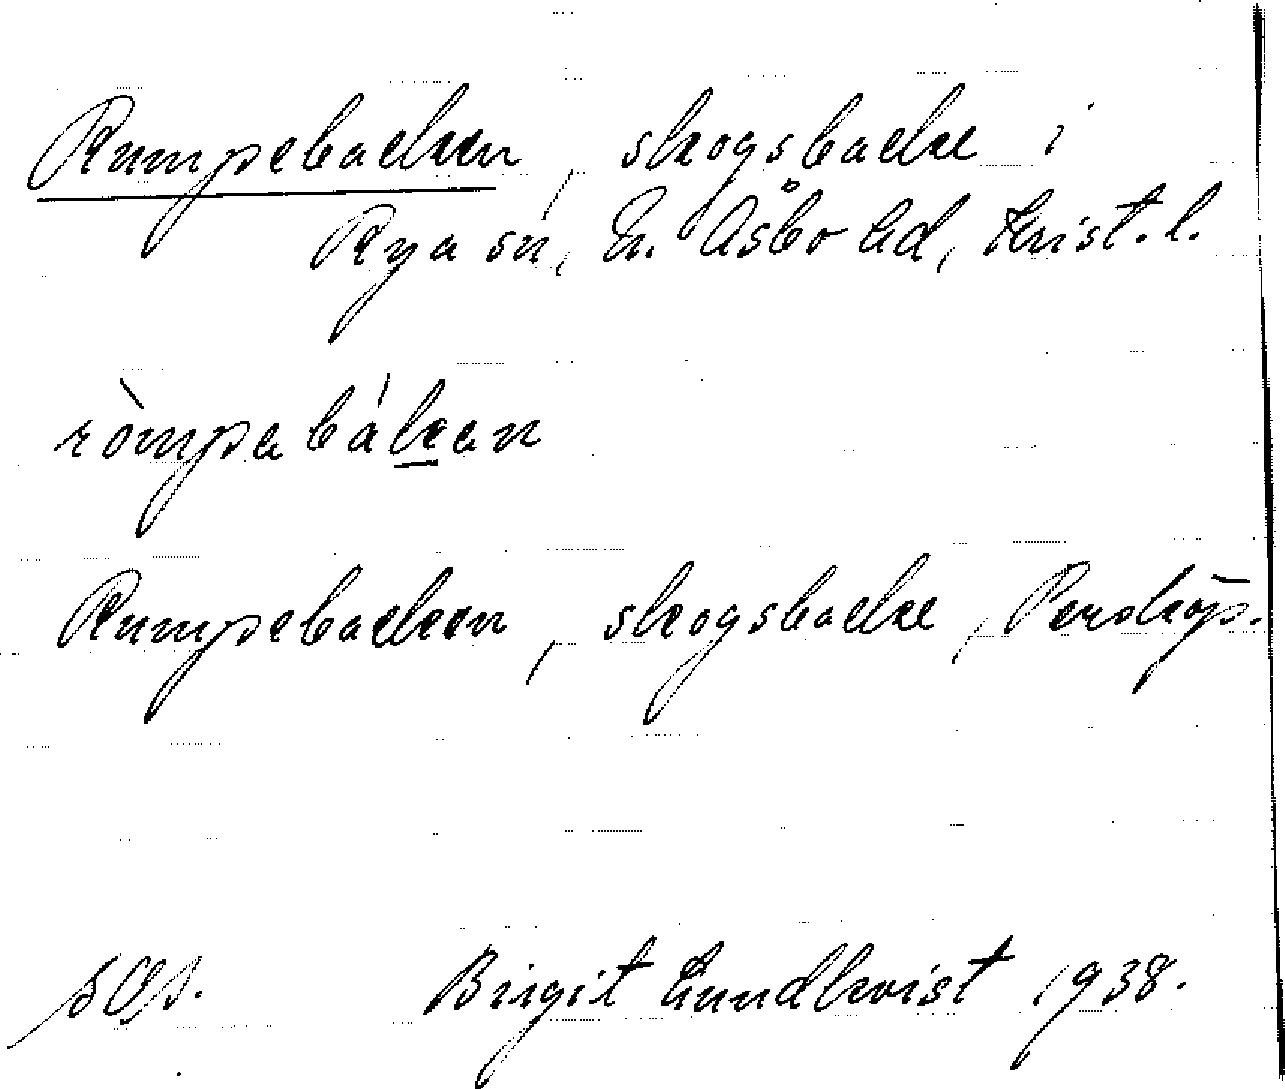 Rumpebacken, skogsbacke i
Rya sn, N. Åsbo hd, Krist. l.
ròmpabákan
Rumpebacken, skogsbacke,
Birgit Lundkvist 1938.